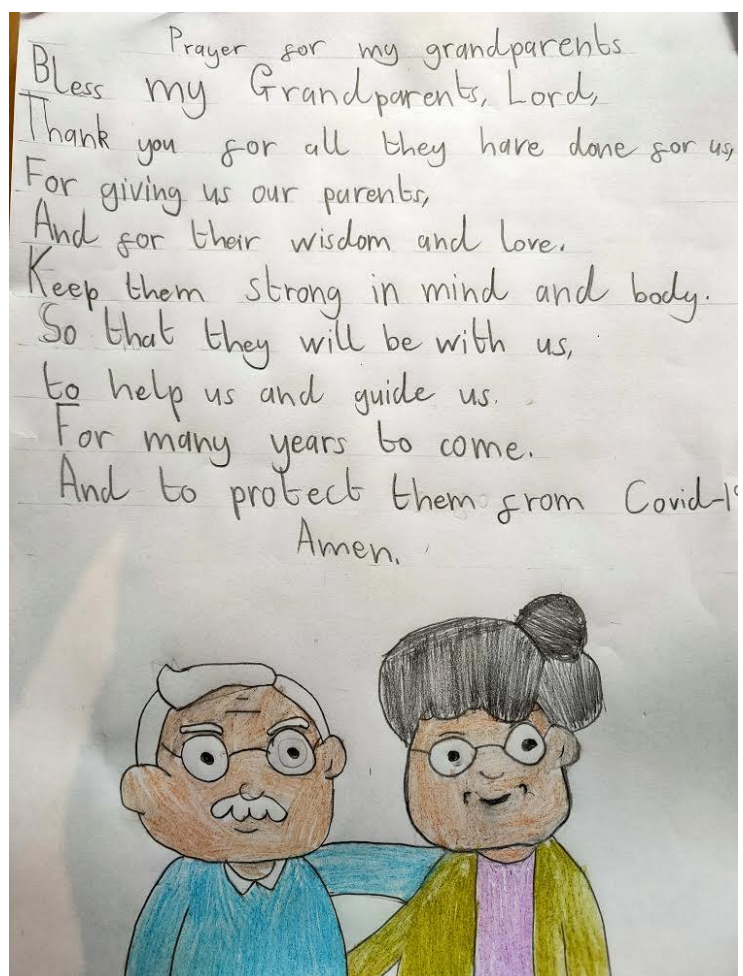 Prayer for my grandparents
Bless my Grandparents, Lord,
Thank you for all they have done for us,
For giving us our parents,
And for their wisdom and love.
Keep them strong in mind and body.
So that they will be with us,
to help us and guide us.
For many years to come.
And to protect them from Covid-19
Amen.